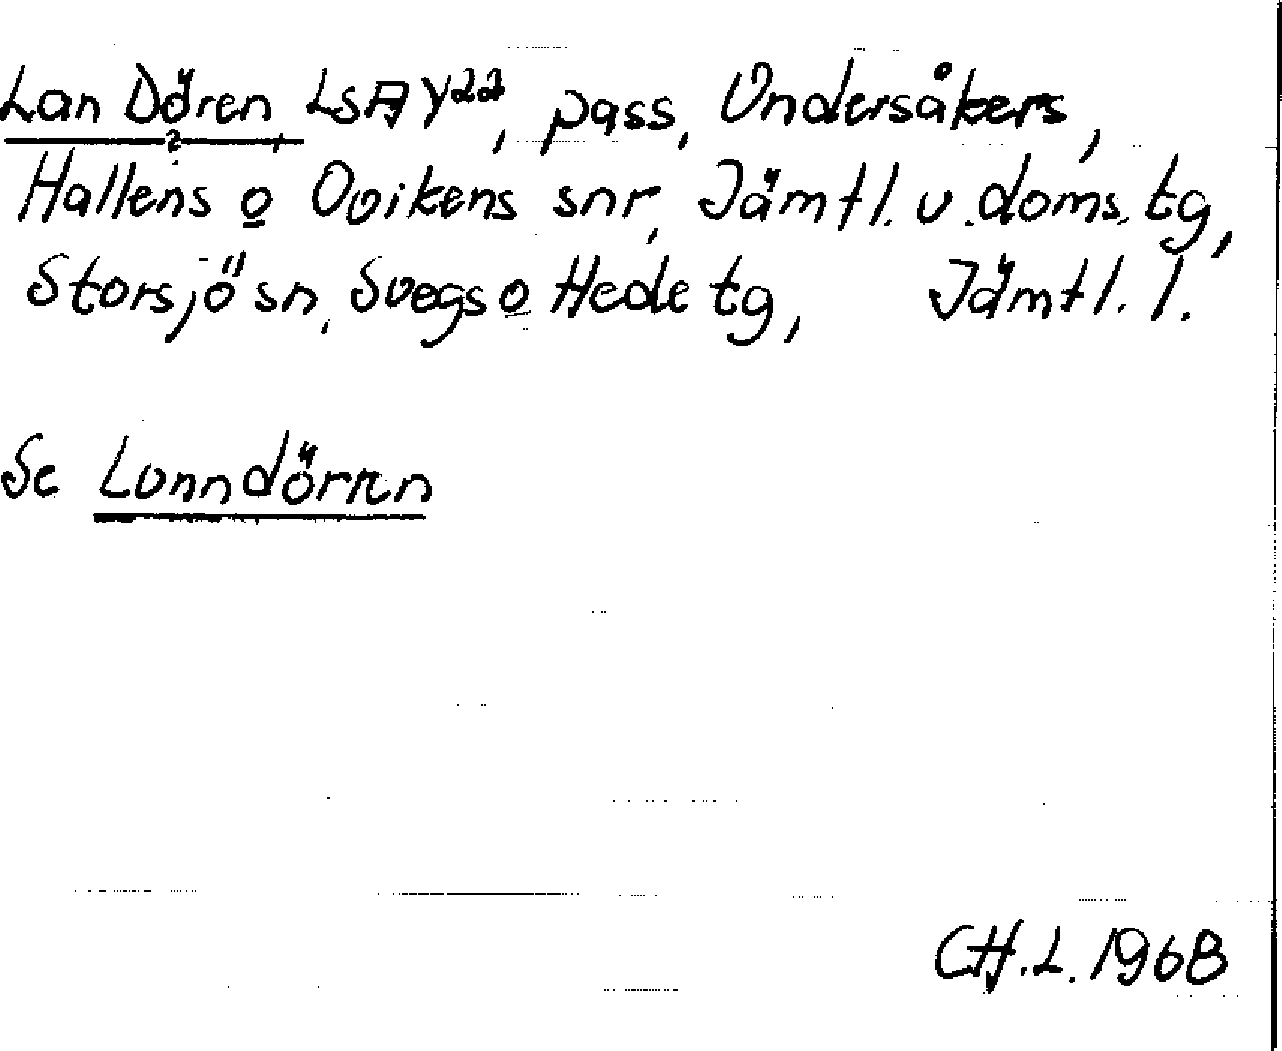 Lan Dören LSA Y22, pass, Undersåkers,
Hallens o Ovikens snr, Jämtl. v. doms. tg,
Storsjö sn, Svegs o Hede tg, Jämtl. l.
Se Lonndörren
CH.L. 1968